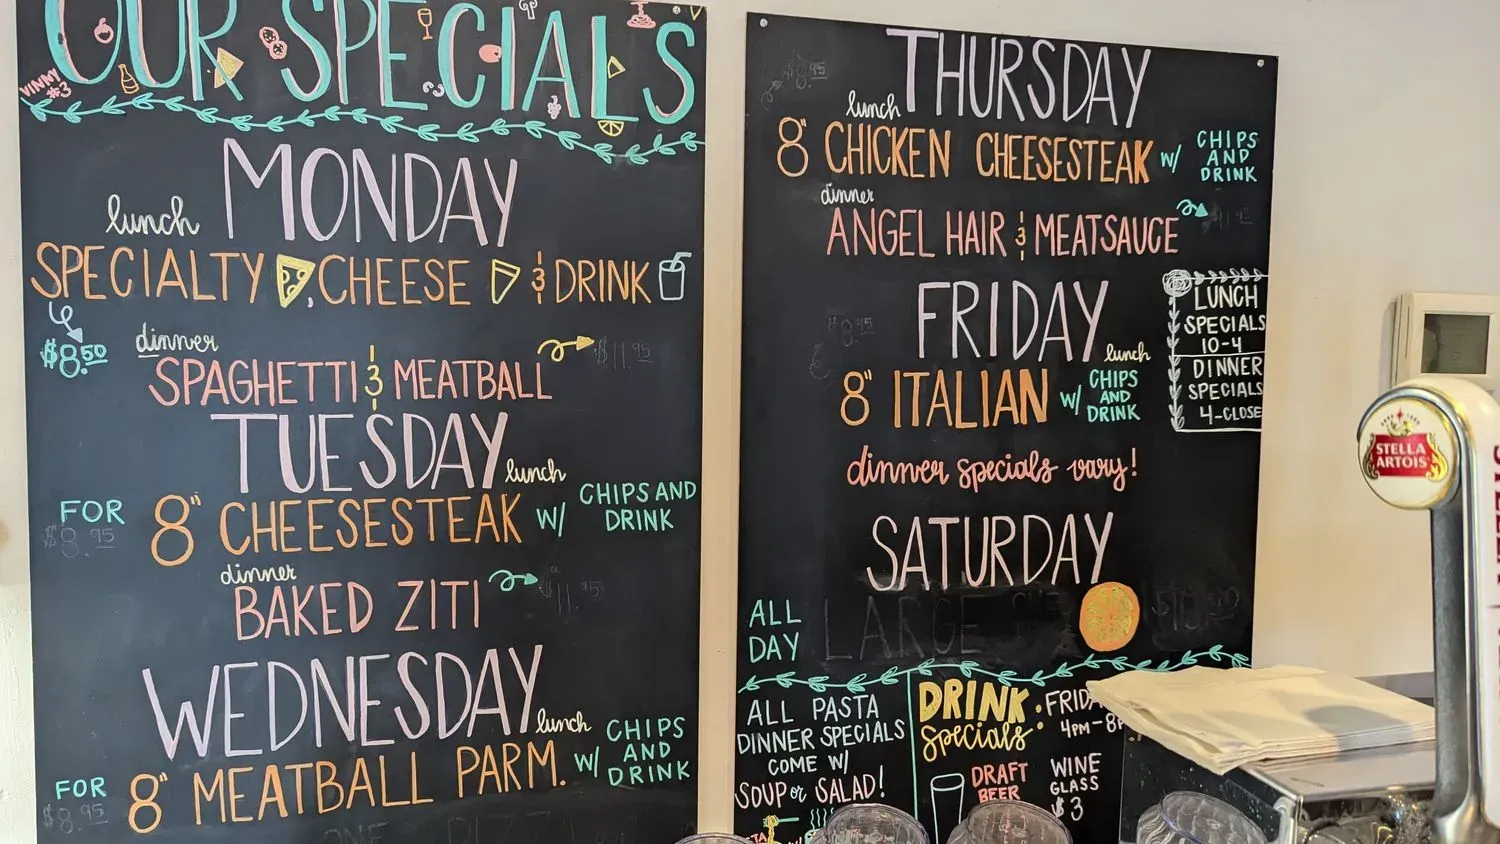 OUR SPECIALS
VINNY'
#3
MONDAY
lunch
SPECIALTY , CHEESE & DRINK
$8.50
dinner
$11.95
SPAGHETTI & MEATBALL
TUESDAY
lunch
FOR 8" CHEESESTEAK W/ CHIPS AND DRINK
$8.95
dinner
BAKED ZITI
$11.95
WEDNESDAY
lunch
FOR 8" MEATBALL PARM. W/ CHIPS AND DRINK
$8.95
THURSDAY
$8.95
lunch
8" CHICKEN CHEESESTEAK W/ CHIPS AND DRINK
dinner
ANGEL HAIR & MEATSAUCE
FRIDAY
$8.95
lunch
8" ITALIAN W/ CHIPS AND DRINK
dinner specials vary!
LUNCH
SPECIALS
10-4
DINNER
SPECIALS
4-CLOSE
SATURDAY
ALL
DAY
LARGE
ALL PASTA
DINNER SPECIALS
COME W/
SOUP or SALAD!
DRINK
specials:
4PM-8P
DRAFT
BEER
WINE
GLASS
$3
STELLA
ARTOIS